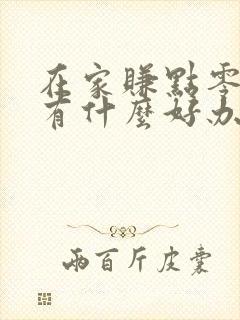 在家賺點零
有什麼好办
兩百斤皮囊